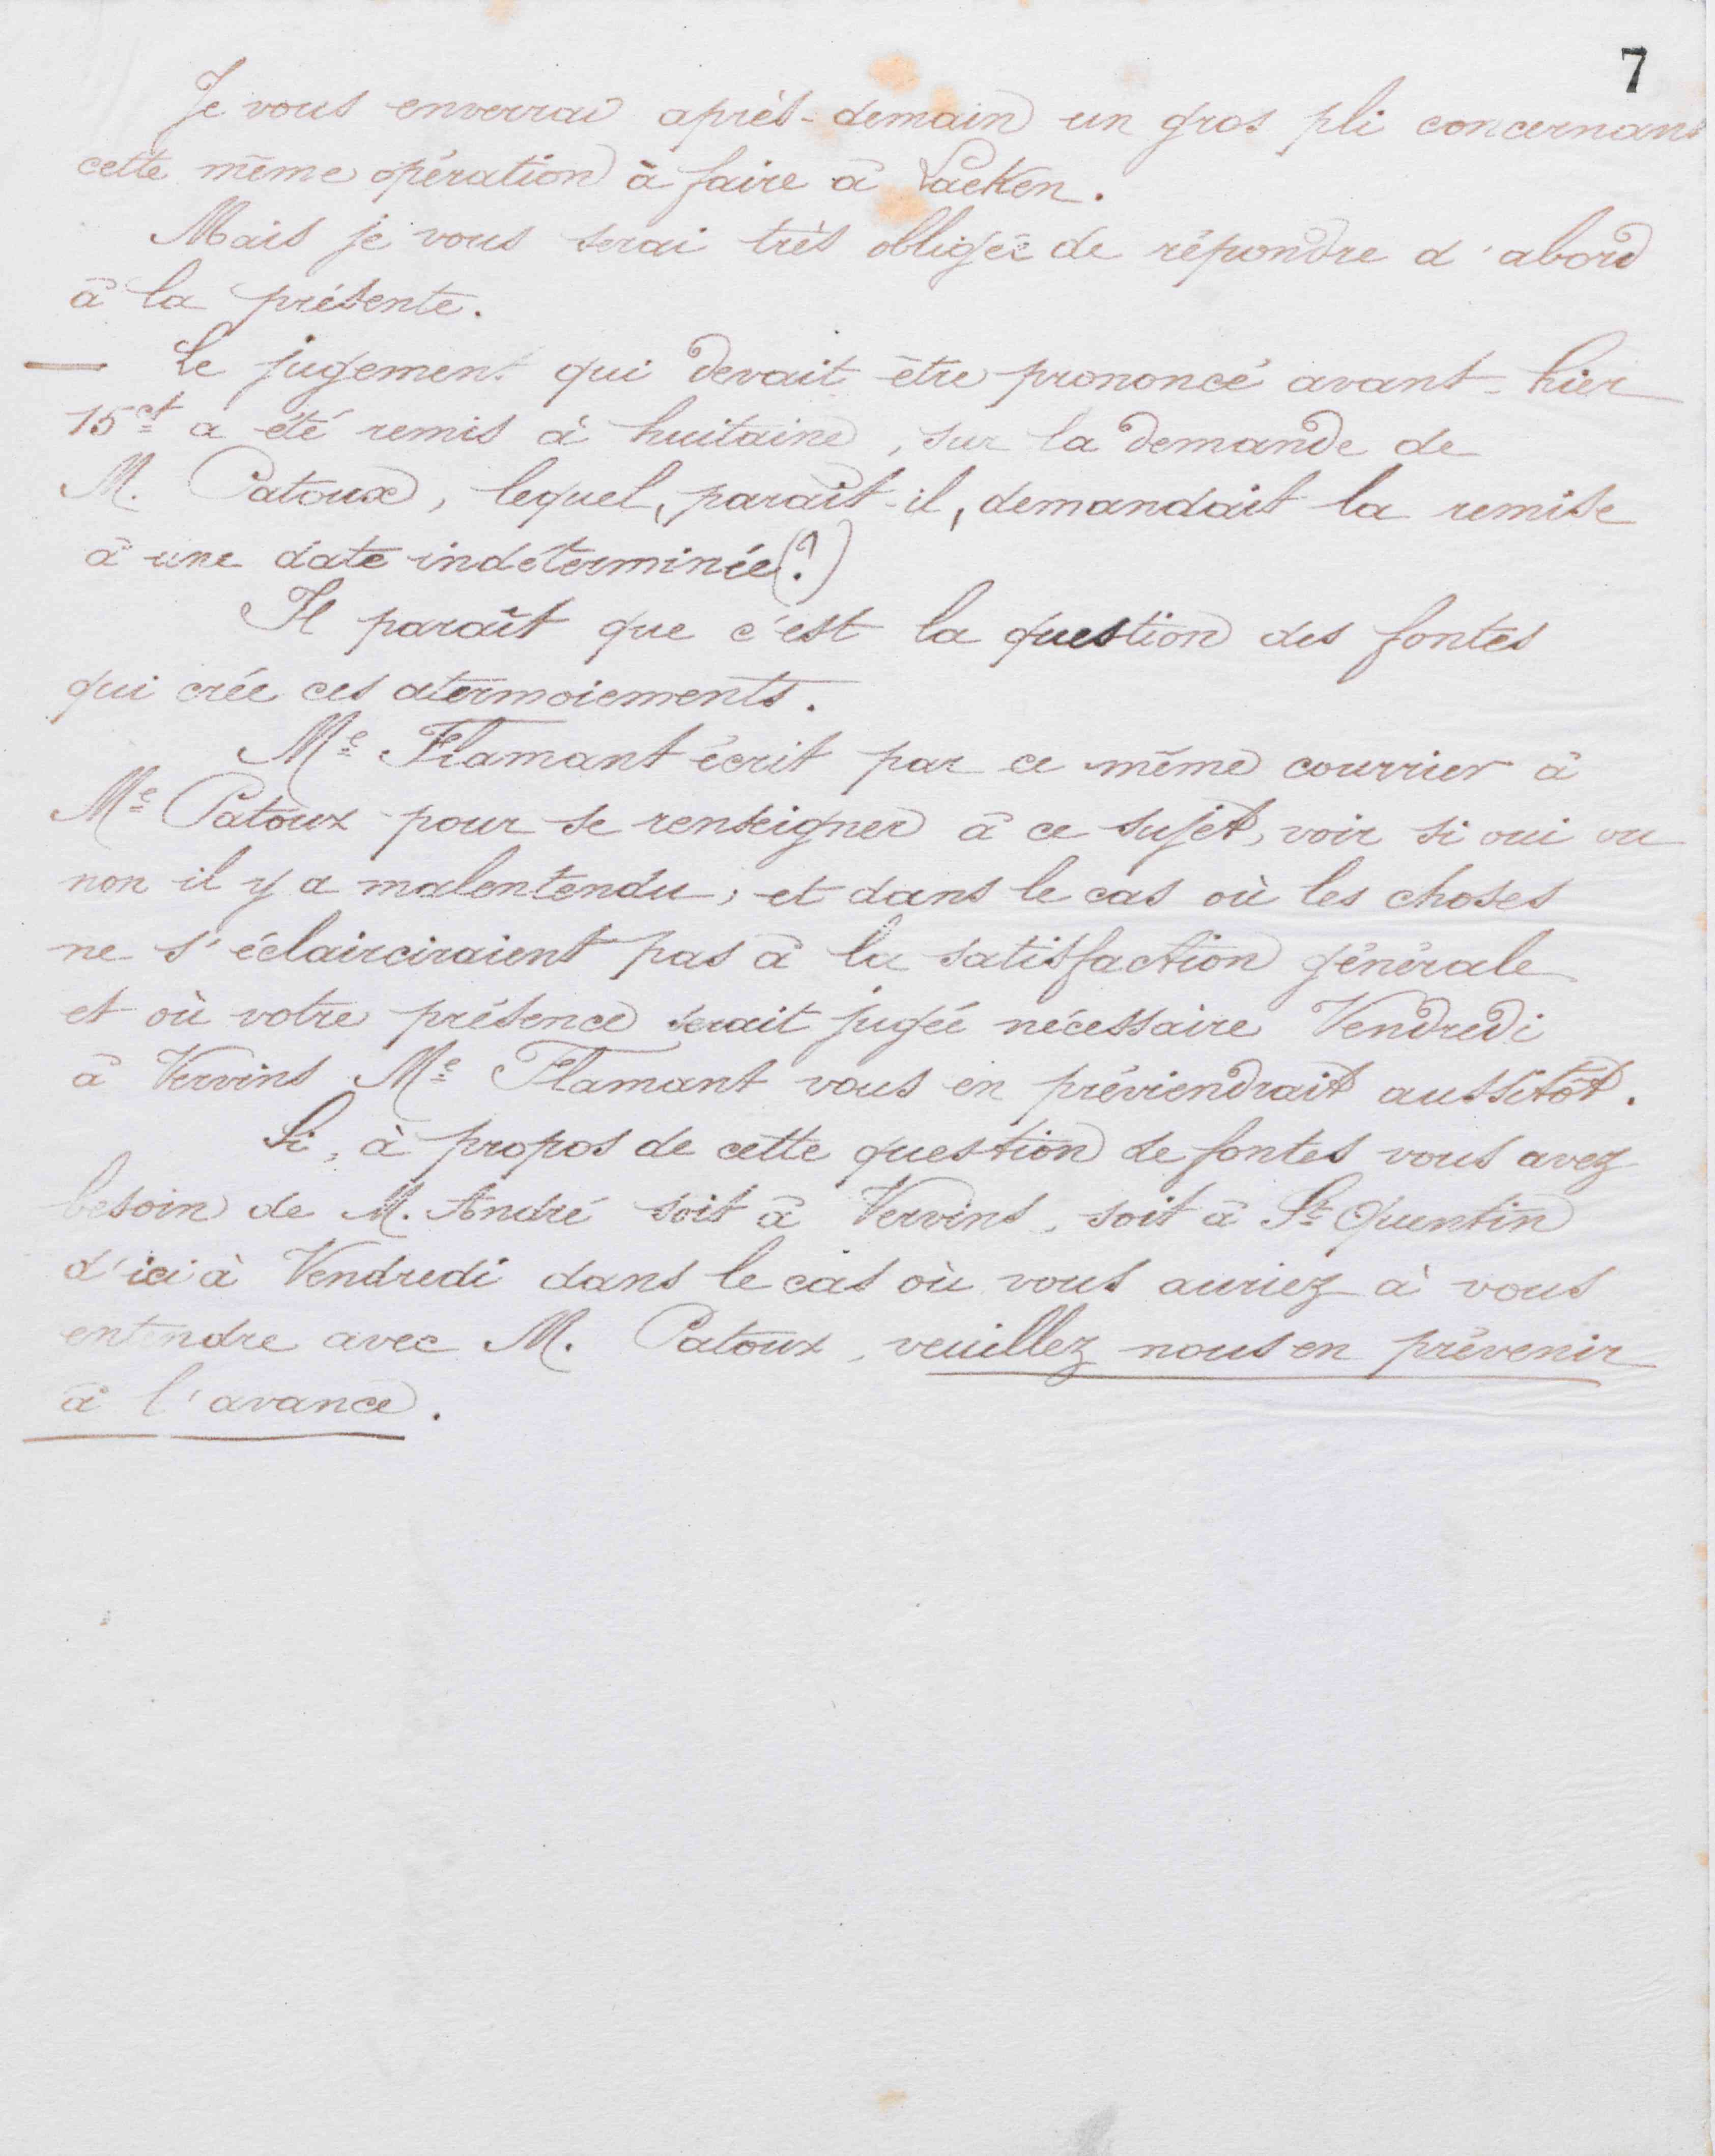 7
Je vous enverrai après-demain un gros pli concernant
cette même opération à faire à Laeken.
Mais je vous serai très obligée de répondre d'abord
à la présente.
— Le jugement qui devait être prononcé avant-hier
15ct a été remis à huitaine, sur la demande de
M. Patoux, lequel, paraît-il, demandait la remise
à une date indéterminée(?)
Il paraît que c'est la question des fontes
qui crée ces atermoiements.
Me Flamant écrit par ce même courrier à
Me Patoux pour se renseigner à ce sujet, voir si oui ou
non il y a malentendu; et dans le cas où les choses
ne s'éclairciraient pas à la satisfaction générale
et où votre présence serait jugée nécessaire Vendredi
à Vervins Me Flamant vous en préviendrait aussitôt.
Si, à propos de cette question de fontes vous avez
besoin de M. André soit à Vervins, soit à St Quentin
d'ici à Vendredi dans le cas où vous auriez à vous
entendre avec M. Patoux, veuillez nous en prévenir
à l'avance.